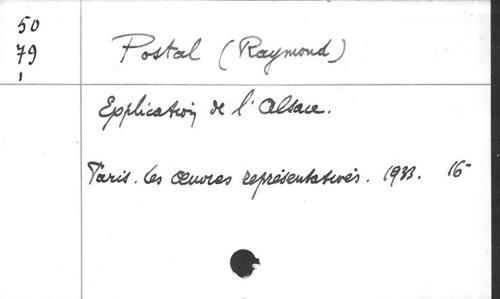 50
79
1
Postal (Raymond)
Explication de l'Alsace.
Paris. Les œuvres représentatives. 1933. 16-